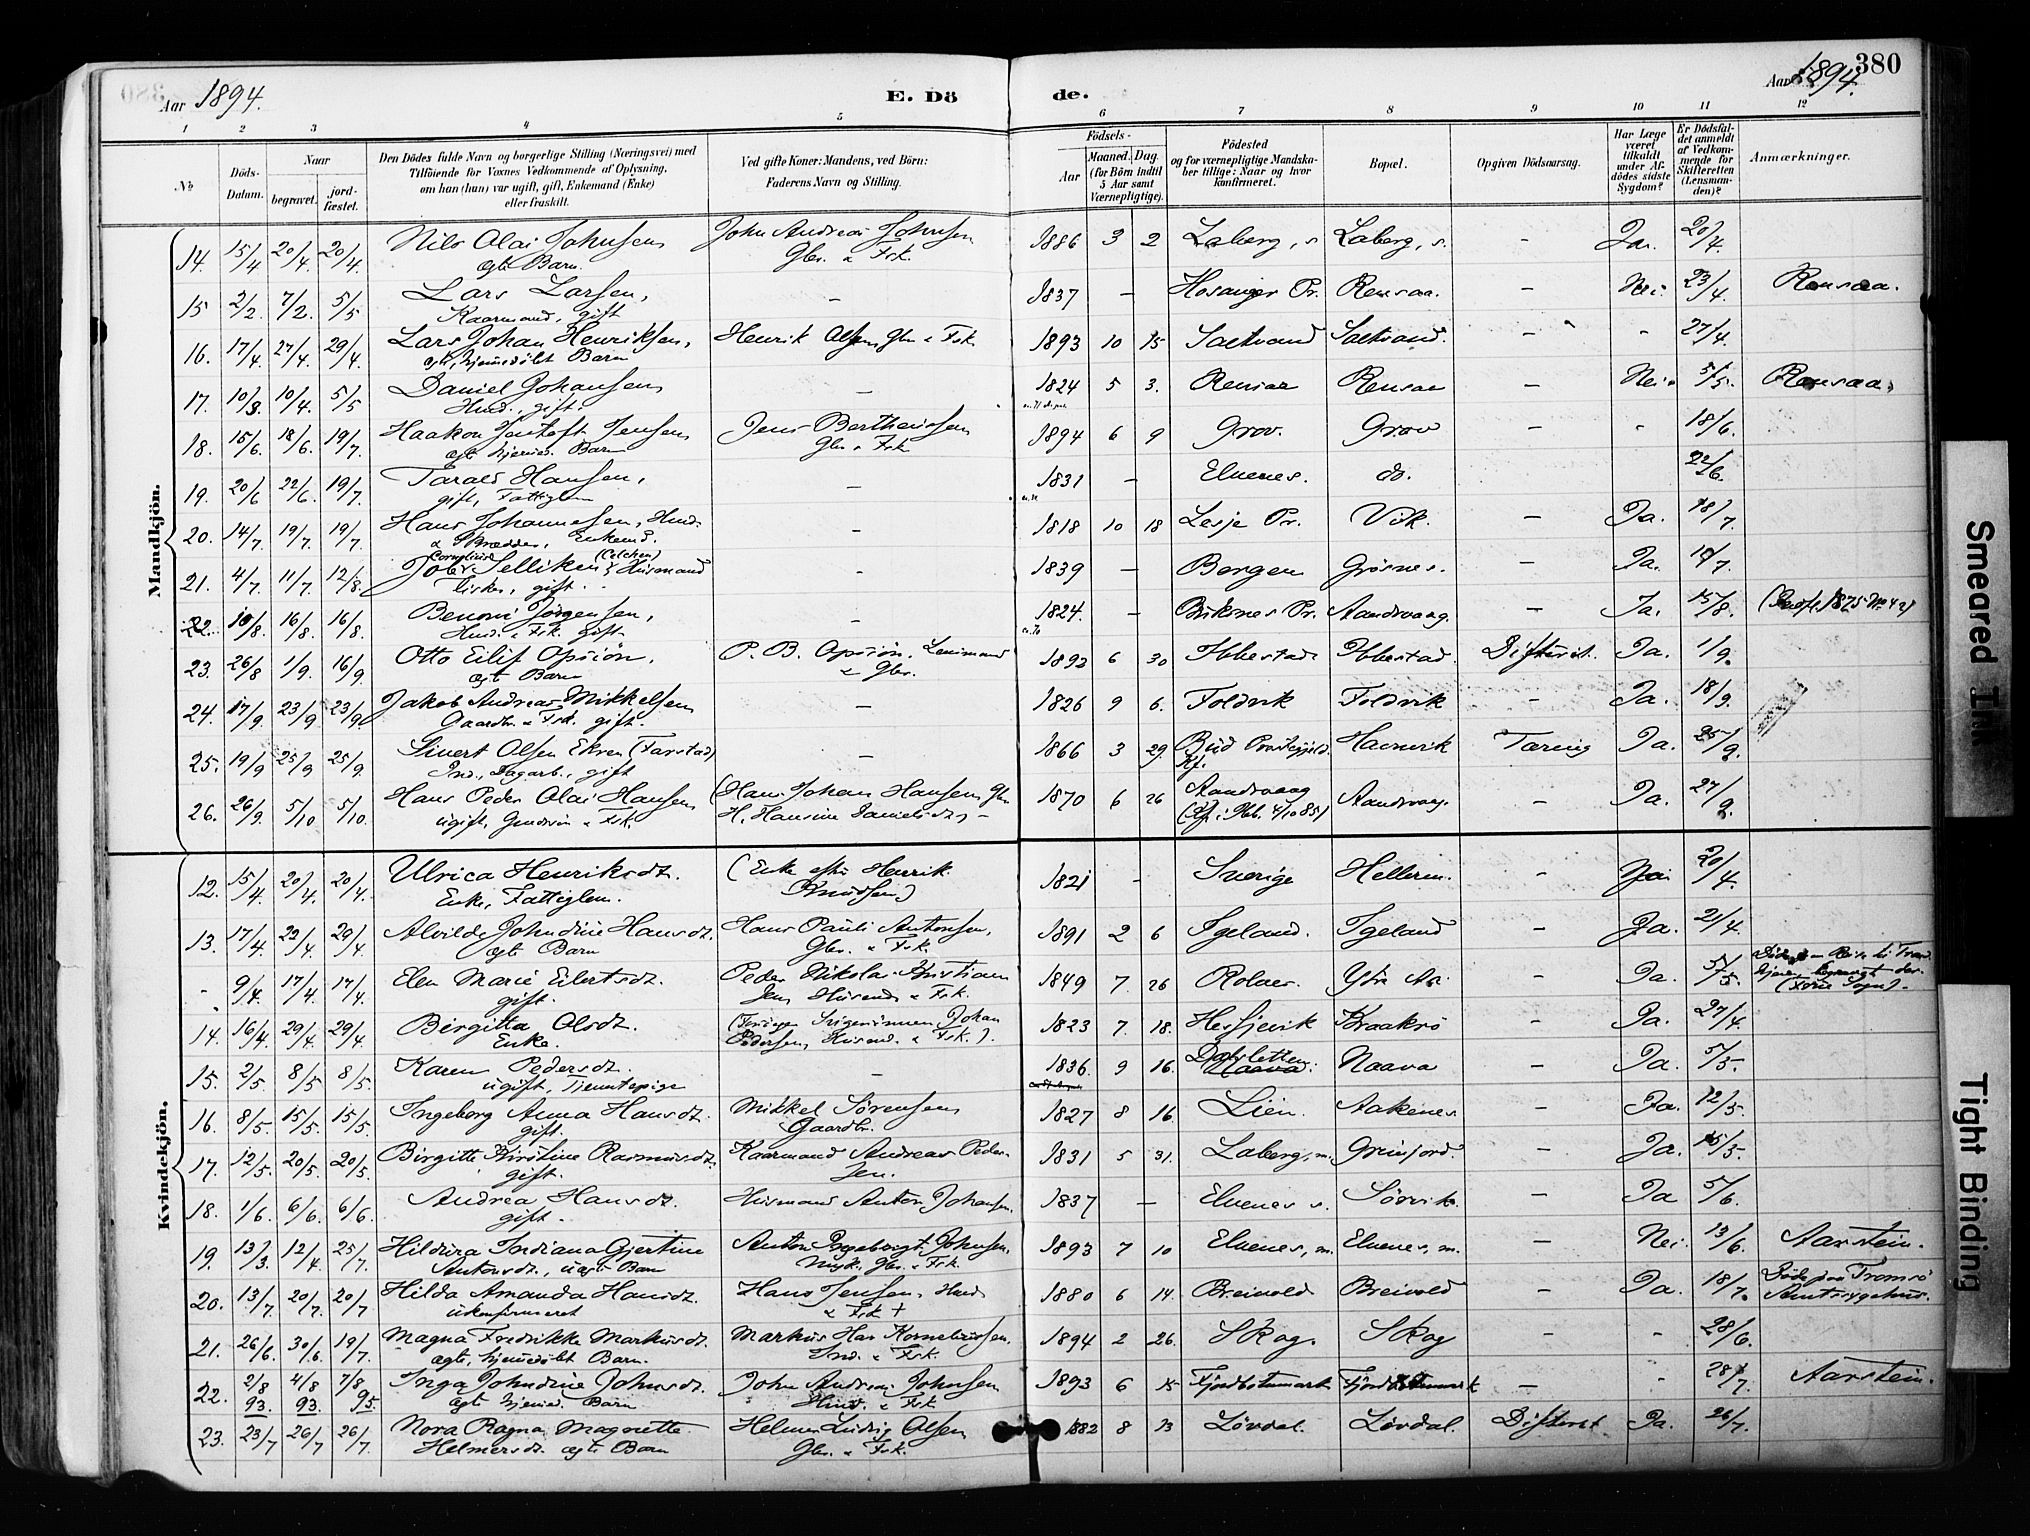 Aar 1894.
E. Döde.
Aar 1894.
380
1 2 3 4 5 6 7 8 9 10 11 12
No
Döds-Datum.
Naar
begravet.
jordfæstet.
Den Dödes fulde Navn og borgerlige Stilling (Næringsvei) med
Tilföiende for Voxnes Vedkommende af Oplysning,
om han (hun) var ugift, gift, Enkemand (Enke)
eller fraskilt.
Ved gifte Koner: Mandens, ved Börn:
Faderens Navn og Stilling.
Födsels-
Aar
Maaned. Dag.
(for Börn indtil
5 Aar samt
Værnepligtige).
Födested
og for værnepligtige Mandska-
ber tillige: Naar og hvor
konfirmeret.
Bopæl.
Opgiven Dödsaarsag.
Har Læge
været
tilkaldt
under Af-
dödes sidste
Sygdom?
Er Dödsfal-
det anmeldt
af Vedkom-
mende for
Skifteretten
(Lensman-
den)?
Anmærkninger.
Mandkjön.
14. 15/4 20/4. 20/4. Nils Olai Johnsen John Andreas Johnsen 1886 3 2 Laberg, s Laberg, s. - Ja. 20/4.
ægte Barn. Gbr. & Fsk.
15 2/2. 7/2. 5/5 Lars Larsen, - 1837 - Hosanger Pr. Rensaa. - Nei. 23/4. Rensaa.
Kaarmand, gift
16. 17/4 27/4. 29/4 Lars Johan Henriksen, Henrik Olsen, Gbr & Fsk. 1893 10 15 Saltvand Saltvand. - - 27/4.
ægte, hjemmedøbt Barn
17. 10/3. 10/4. 5/5 Daniel Johansen - 1824 5 3. Rensaa Rensaa - Nei. 5/5. Rensaa.
Husmd., gift.
18. 15/6. 18/6. 19/7. Haakon Jentoft Jensen Jens Bertheussen 1894 6 9 Grov. Grov - - 18/6.
ægte hjemmed. Barn Gbr. & Fsk
19. 20/6 22/6. 19/7. Tarald Hansen, - 1831 - Elvenes. do. 22/6.
gift, Fattiglem
20. 14/7. 19/7. 19/7. Hans Johannesen, Husmd. - 1818 10 18 Lesje Pr. Vik. - Ja. 18/7.
& Snedker, Enkemd.
21. 4/7. 11/7. 12/8. Job Selliken, Husmand - 1839 - Bergen Grøsnes. - Ja. 10/7.
Fisker, gift.
22. 10/8. 16/8. 16/8. Benoni Jørgensen, - 1824. - Buksnes Pr. Aandsvaag. - Ja. 15/8.
Husmd. & Fsk. gift.
23. 26/8 1/9. 16/9. Otto Eilif Opsiön. P. B. Opsiön. Lensmand 1892 6 30 Ibbestad Ibbestad. Difterit. Ja. 1/9.
ægte Barn & Gbr.
24. 17/9. 23/9 23/9. Jakob Andreas Mikkelsen - 1826 9 6. Foldvik Foldvik - Ja. 18/9.
Gaardbr. & Fsk. gift.
25. 19/9 25/9 25/9. Sivert Olsen Ekren (Farstad) - 1866 3 29. Bud Præstegjeld. Havnvik Tæring Ja. 25/9.
Ind., Dagarb., gift Kf.
26. 26/9. 5/10 5/10. Hans Peder Olai Hansen (Hans Johan Hansen, Gbr 1870 6 26 Aandsvaag Aandsvaag. - Ja. 27/9.
ugift, Gaardssøn & Fsk. H. Hansine Danielsdtr - (Kf. i Ibb. 4/10 85)
Kvindekjön.
12. 15/4. 20/4. 20/4. Ulrica Henriksdtr. (Enke efter Henrik 1821 - Sverige Helleren. - Nei 20/4.
Enke, Fattiglem. Knudsen)
13. 17/4. 22/4 29/4 Alvilde Johndine Hansdtr. Hans Pauli Antonsen, 1891 2 6 Igeland. Igeland - Ja. 21/4.
ægte Barn Gbr. & Fsk.
- 9/4. 17/4. 17/4. Elen Marie Eilertsdtr. Peder Nikolai Kristian 1849 7. 26 Rolnes. - Ja. 5/5.
gift. Jens, Husmd. & Fsk.
14. 16/4. 29/4. 29/4 Birgitta Olsdtr. 1823 7. 18. Kraakrø - Ja. 27/4.
Enke. Pedersen, Husmd. & Fsk.).
15. 2/5. 8/5 8/5. Karen Pedersdtr. - 1836. 9 16. Naava - Ja. 5/5.
ugift, Tjenestepige
16. 8/5. 15/5. 15/5. Ingeborg Anna Hansdtr. Mikkel Sørensen 1827 8 16. Lien. Aakenes - Ja. 12/5.
gift. Gaardbr.
17. 12/5. 20/5. 20/5. Birgitte Kirstine Rasmusdtr. Kaarmand Andreas Peder- 1831 5 31. Laberg, m. - Ja. 15/5.
gift. sen.
18. 1/6. 6/6. 6/6. Andrea Hansdtr. Husmand Anton Johansen. 1837 - Elvenes s. Sörvik. - Ja 5/6.
gift.
19. 13/3 12/4. 25/7. Hildura Indiana Gjertine Anton Ingebrigt Johnsen. 1893 7 10 Elvenes, m. Elvenes, m. - Nei. 13/6. Aarstein.
Antonsdtr., uægte Barn Ungk. Gbr. & Fsk.
20. 13/7 20/7. 20/7 Hilda Amanda Hansdtr. Hans Jensen, Husmd 1880 6 14. Breivold Breivold - Ja. 18/7. Døde paa Tromsø
ukonfirmeret & Fsk + Amtssygehus.
21. 26/6. 30/6. 19/7. Magna Fredrikke Markusdtr. Markus Har Korneliussen. 1894 2 26. Skog. Skog - - 28/6.
ægte, hjemmedøbt Barn. Ind. & Fsk.
22. 2/8 93. 4/8 93. 7/8 95. Inga Johndine Johnsdtr. John Andreas Johnsen 1893 6 15 Fjordbotnmark Fjordbotnmark - - 28/7. Aarstein.
ægte hjemmed. Barn Husmd. & Fsk
23. 23/7 26/7 26/7. Nora Ragna Magnette Helmer Ludvig Olsen 1882 8 13 Løvdal. Løvdal. Difterit Ja. 26/7.
Helmersdtr. ægte Barn Gbr. & Fsk.
Smeared Ink
Tight Binding